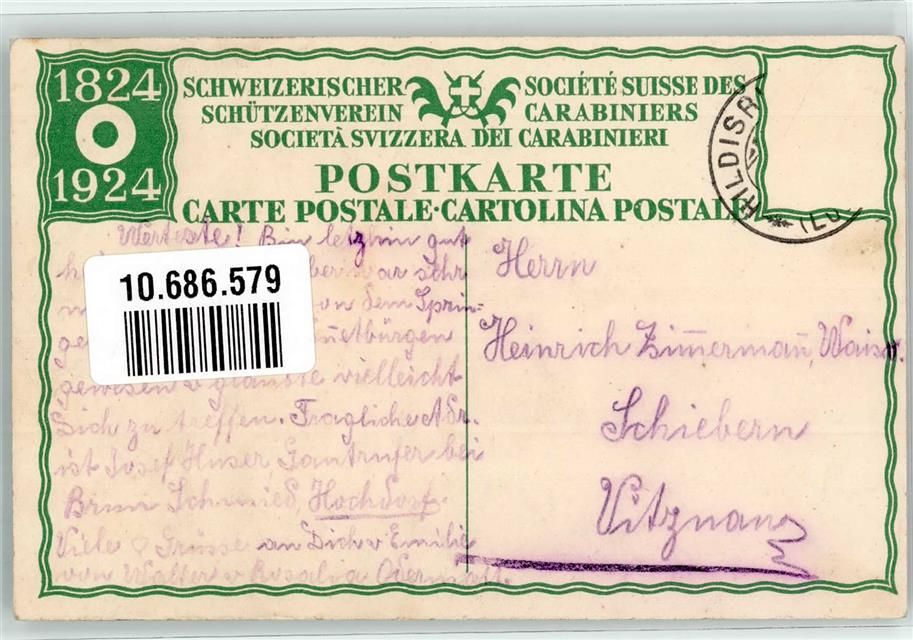 1824
1924
SCHWEIZERISCHER SCHÜTZENVEREIN
SOCIÉTÉ SUISSE DES CARABINIERS
SOCIETÀ SVIZZERA DEI CARABINIERI
POSTKARTE
CARTE POSTALE·CARTOLINA POSTALE
HILDISR
(LU
10.686.579
Werteste! Bin letzhin gut
sehr
von dem Sprin-
bürgen
gewesen & glaubte vielleicht
Dich zu treffen. Fragliche Adr.
ist Josef Huser, bei
Schmied, Hochdorf.
Viele Grüsse an Dich & Emilie
von Walter & Rosalia Odermatt.
Herrn
Heinrich Zim̅erman̅, Wais.
Schiebern
Vitznau